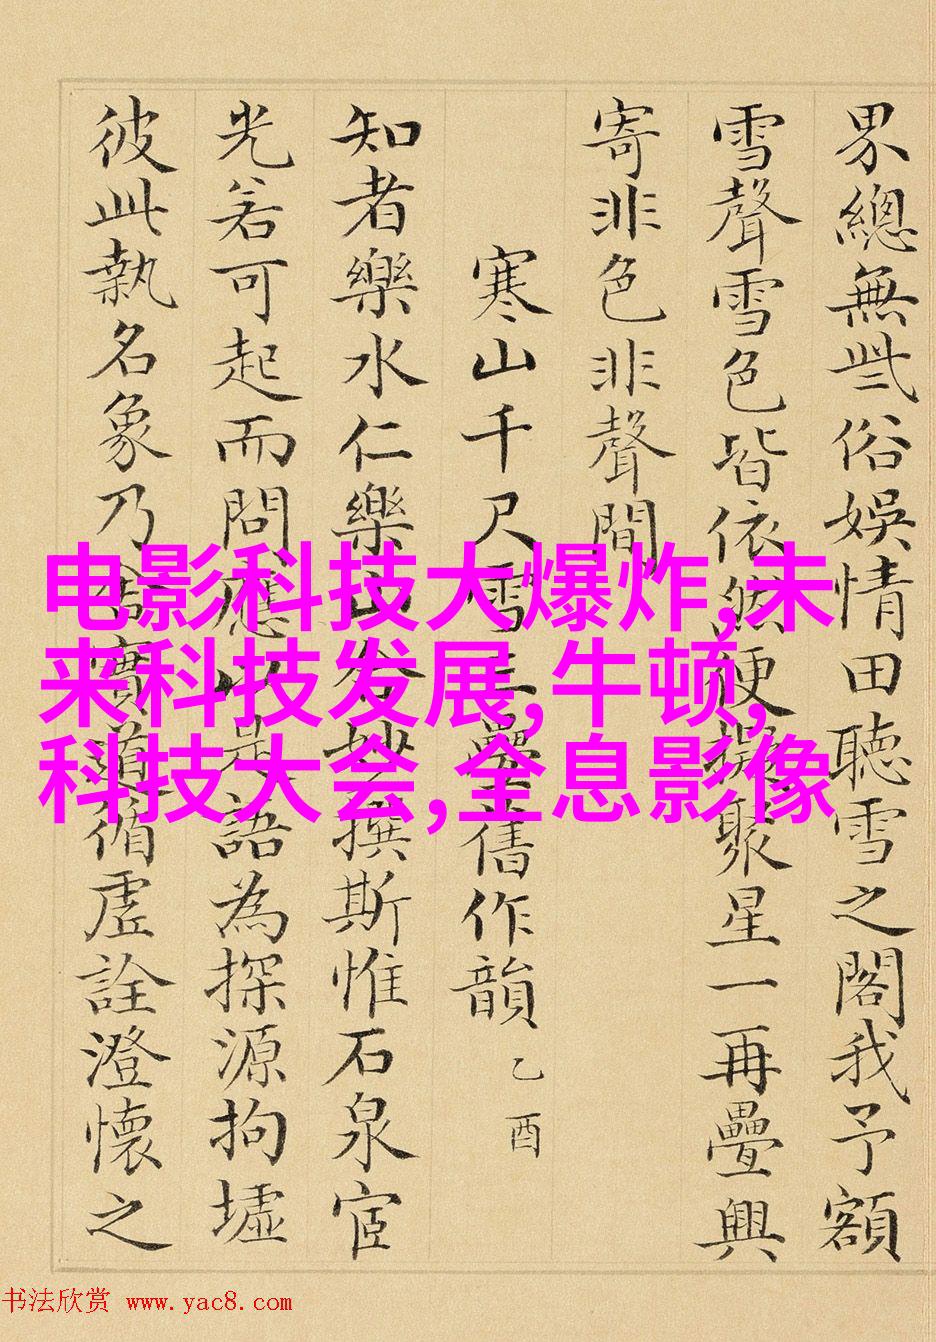 界總無些俗娛情田聽雪之閣我予額
雪聲雪色皆依然便擬聚星一再疊興
寄非色非聲間
寒山千尺雪三疊舊作韻 乙酉
知者樂水仁樂山妙撰斯惟石泉宦
光若可起而問應以是語為探源拘墟
彼此執名象乃實道循虛詮澄懷之
电影科技大爆炸,未
来科技发展,牛顿,
科技大会,全息影像
书法欣赏 www.yac8.com